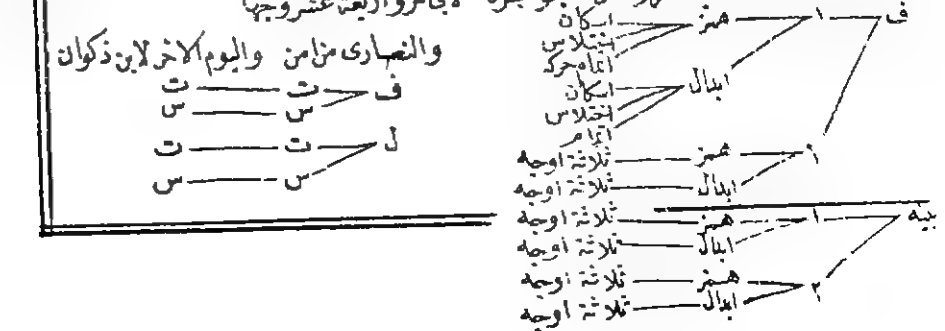 لابي عمرو اربعة عشر وجها
والنصارى من امن واليوم الاخر لابن ذكوان
ف ت ت
س س
ل ت ت
س س
ف ١ همز اسكان
اختلاس
اتمام حركه
ابدال اسكان
اختلاس
اتمام
٢ همز ثلاثة اوجه
ابدال ثلاثة اوجه
بيه ١ همز ثلاثة اوجه
ابدال ثلاثة اوجه
٢ همز ثلاثة اوجه
ابدال ثلاثة اوجه